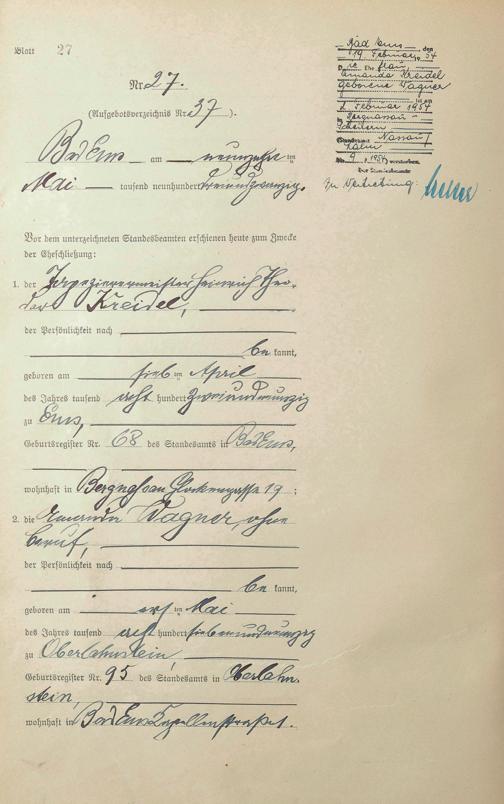 Blatt 27
Nr. 27.
(Aufgebotsverzeichnis Nr. 37).
Bad Ems am neunzehn ten
Mai tausend neunhundert dreiundzwanzig.
Vor dem unterzeichneten Standesbeamten erschienen heute zum Zwecke
der Eheschließung:
1. der Tapezierermeister Heinrich Theo-
dor Kreidel,
der Persönlichkeit nach
be kannt,
geboren am sieb ten April
des Jahres tausend acht hundert zweiundneunzig
zu Ems,
Geburtsregister Nr. 68 des Standesamts in Bad Ems,
wohnhaft in Bergnassau Glockengasse 19;
2. die Amanda Wagner, ohne
Beruf,
der Persönlichkeit nach
be kannt,
geboren am ers ten Mai
des Jahres tausend acht hundert siebenundneunzig
zu Oberlahnstein,
Geburtsregister Nr. 95 des Standesamts in Oberlahn-
stein,
wohnhaft in Bad Ems Kapellenstraße 1.
Bad Ems, den
19. Februar 54
Die Ehefrau
Amanda Kreidel
geborene Wagner
ist am
2. Februar 1954
in Bergnassau-
Scheuern
Standesamt Nassau/
Lahn
Nr. 9 1954 verstorben.
Der Standesbeamte
In Vertretung: